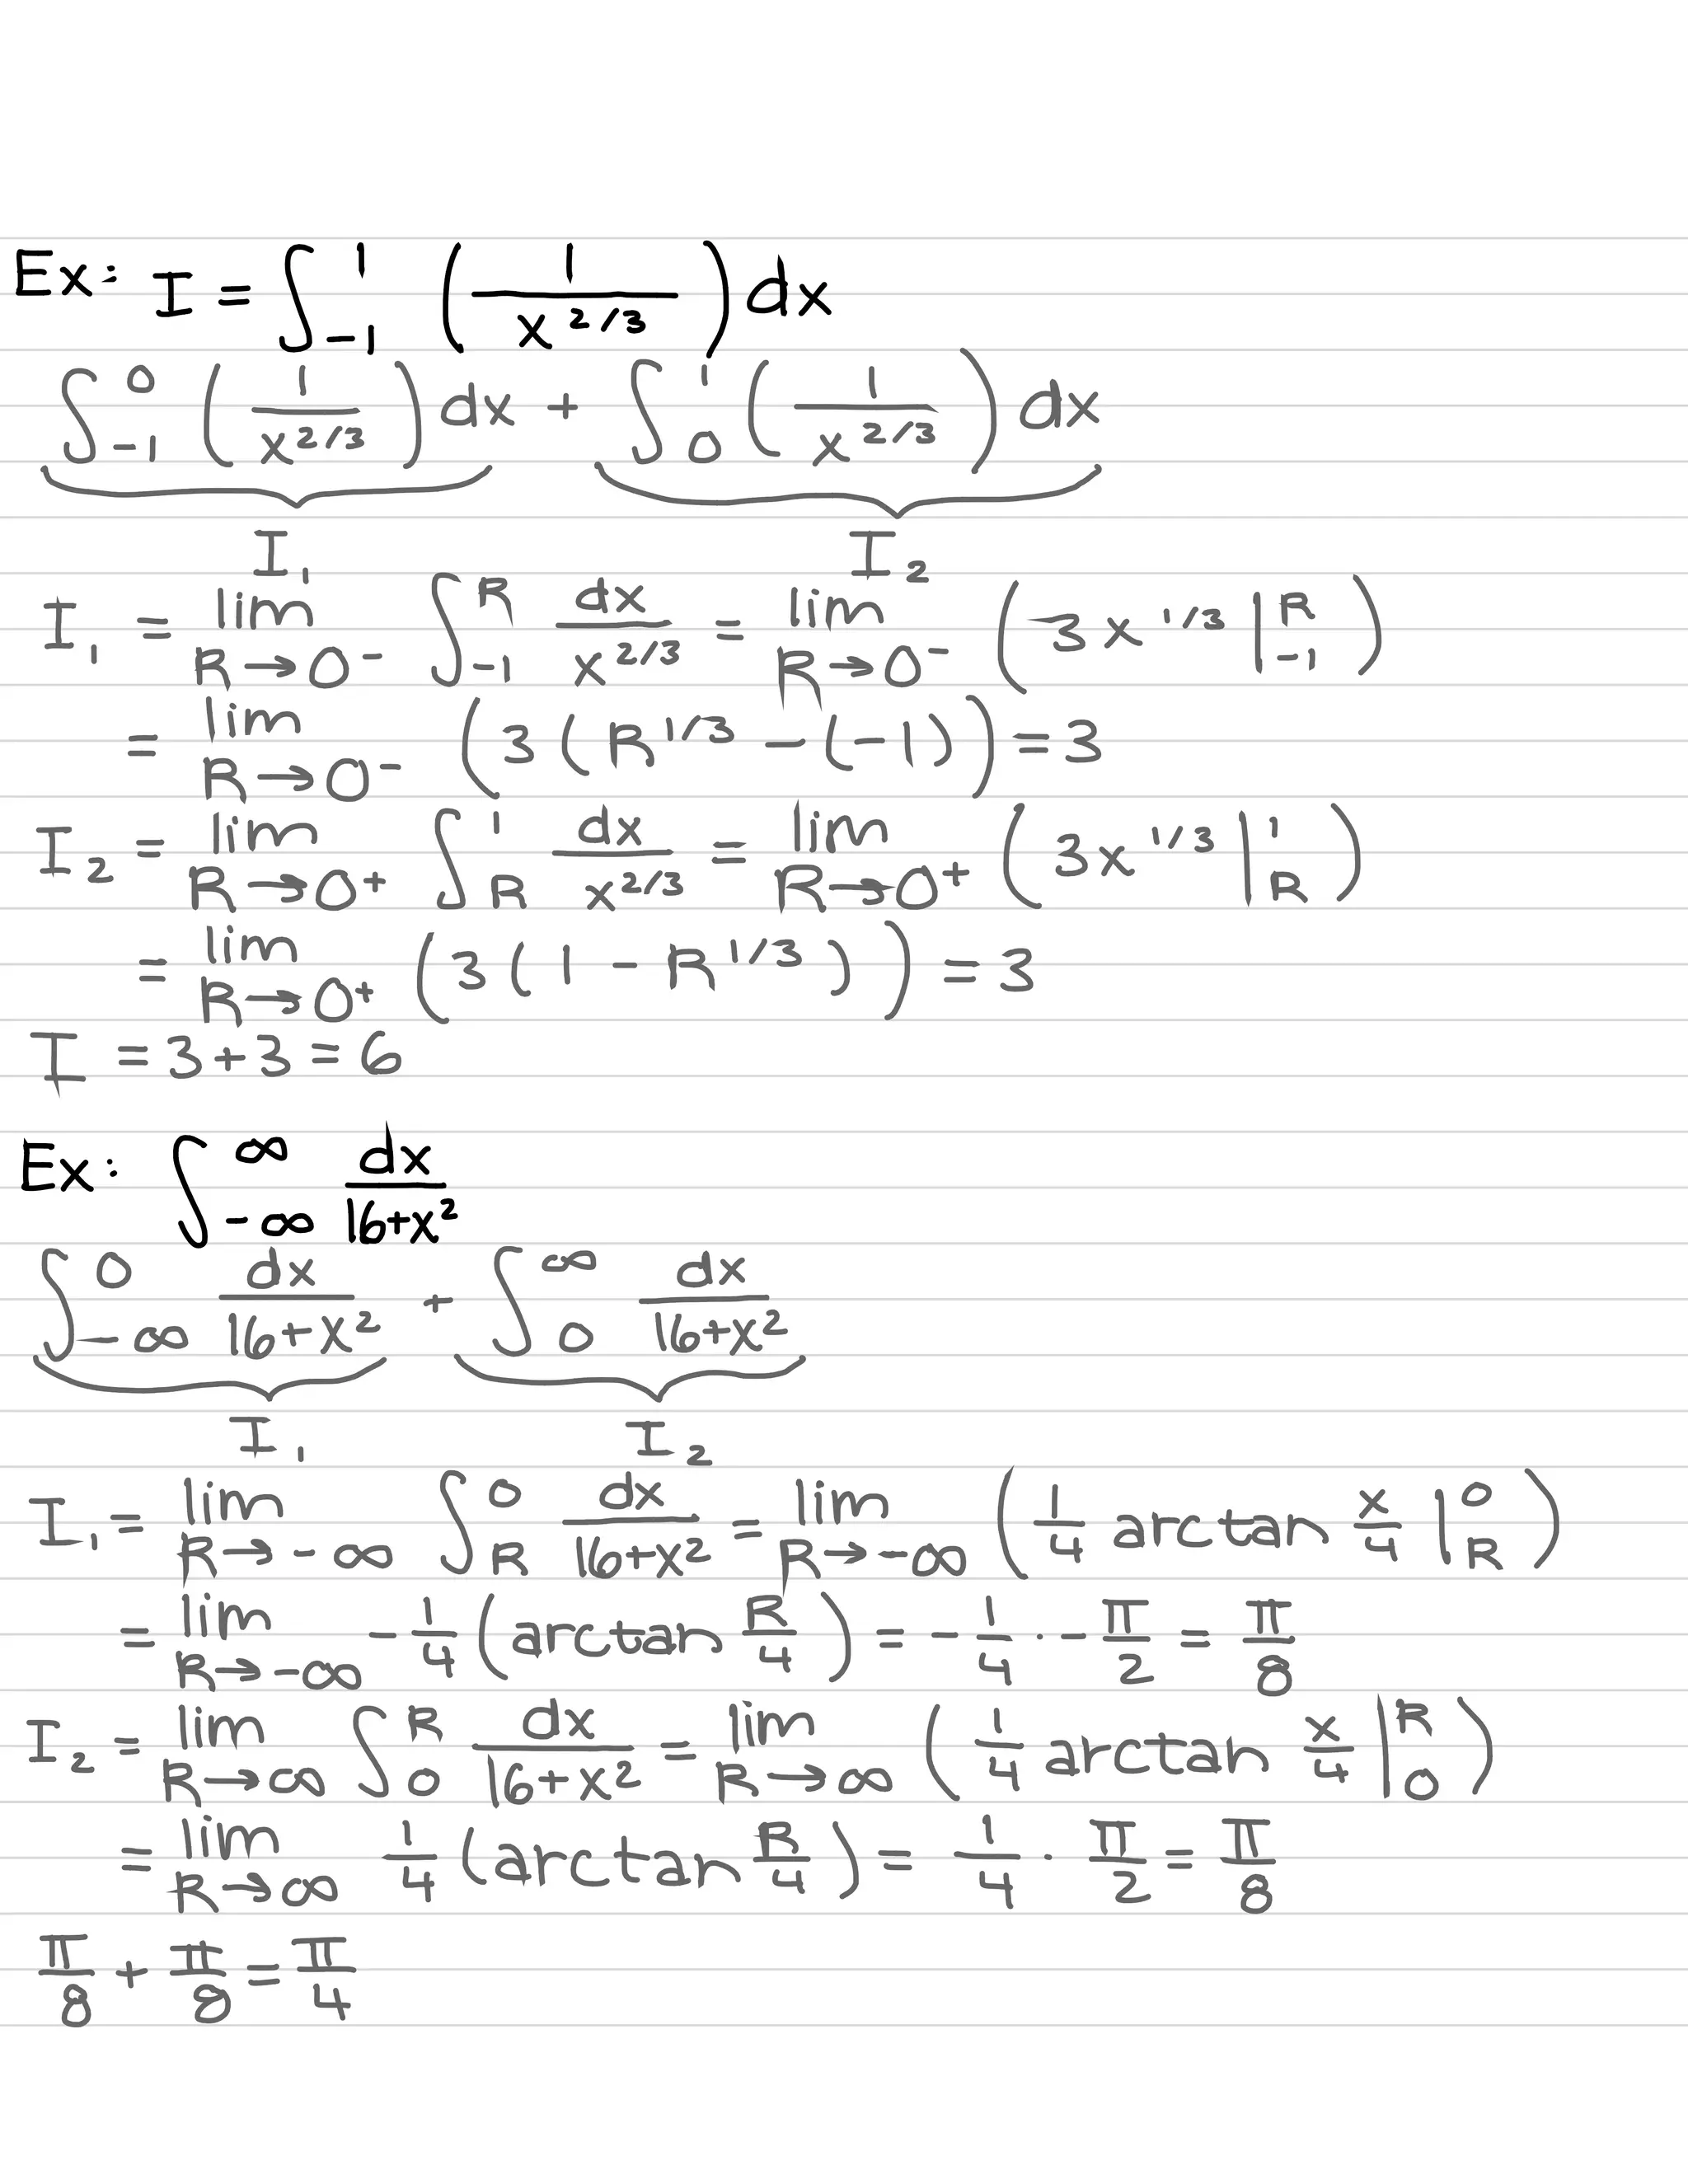 Ex: I = ∫_{-1}^{1} (1/x^{2/3}) dx
∫_{-1}^{0} (1/x^{2/3}) dx + ∫_{0}^{1} (1/x^{2/3}) dx
I₁ I₂
I₁ = lim_{R→0⁻} ∫_{-1}^{R} dx/x^{2/3} = lim_{R→0⁻} (3x^{1/3} |_{-1}^{R})
= lim_{R→0⁻} (3(R^{1/3} - (-1))) = 3
I₂ = lim_{R→0⁺} ∫_{R}^{1} dx/x^{2/3} = lim_{R→0⁺} (3x^{1/3} |_{R}^{1})
= lim_{R→0⁺} (3(1 - R^{1/3})) = 3
I = 3 + 3 = 6
Ex: ∫_{-∞}^{∞} dx/(16+x²)
∫_{-∞}^{0} dx/(16+x²) + ∫_{0}^{∞} dx/(16+x²)
I₁ I₂
I₁ = lim_{R→-∞} ∫_{R}^{0} dx/(16+x²) = lim_{R→-∞} (1/4 arctan x/4 |_{R}^{0})
= lim_{R→-∞} -1/4 (arctan R/4) = -1/4 · -π/2 = π/8
I₂ = lim_{R→∞} ∫_{0}^{R} dx/(16+x²) = lim_{R→∞} (1/4 arctan x/4 |_{0}^{R})
= lim_{R→∞} 1/4 (arctan R/4) = 1/4 · π/2 = π/8
π/8 + π/8 = π/4